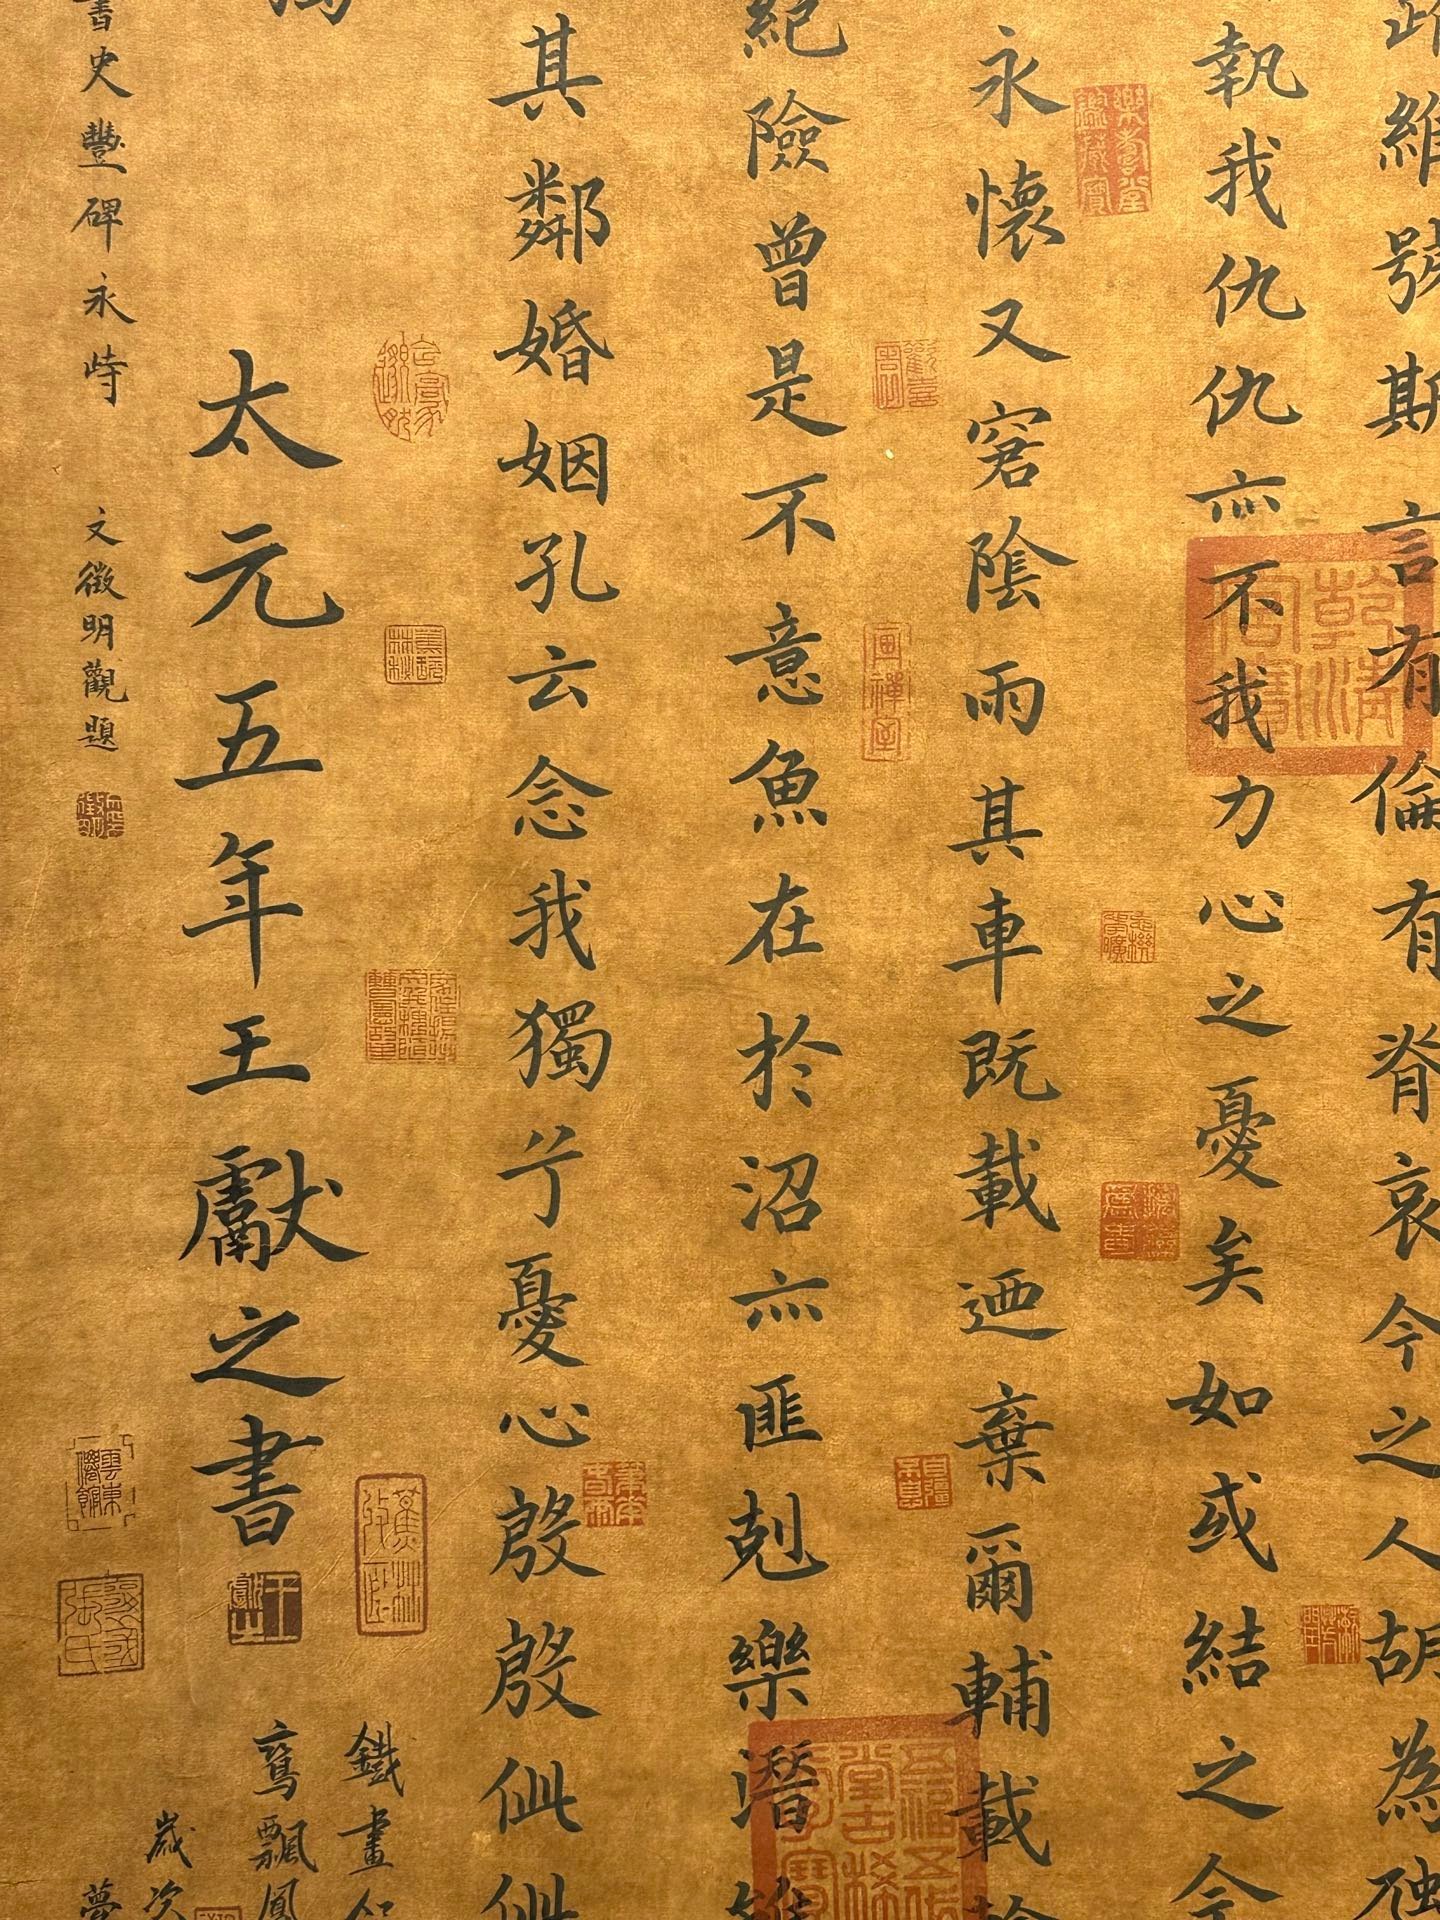 維號斯言有倫有脊哀今之人胡為
執我仇仇亦不我力心之憂矣如或結之今
永懷又窘陰雨其車既載迺棄爾輔載
險曾是不意魚在於沼亦匪剋樂潛
其鄰婚姻孔云念我獨兮憂心慇慇仳
太元五年王獻之書
鐵畫
鸞飄鳳
歲次
書史豐碑永峙
文徵明觀題